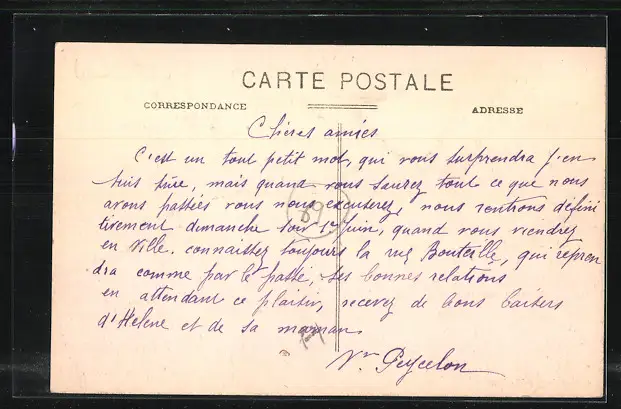 CARTE POSTALE
CORRESPONDANCE
ADRESSE
Chères amies
C'est un tout petit mot, qui vous surprendra j'en
suis sûre, mais quand vous saurez tout ce que nous
avons passées vous nous excuserez, nous rentrons défini
tivement dimanche soir 1er Juin, quand vous viendrez
en ville. connaissez toujours la rue Bouteille, qui repren
dra comme par le passé, ses bonnes relations
en attendant ce plaisir, recevez de bons baisers
d'Helene et de sa maman
Vve Peycelon